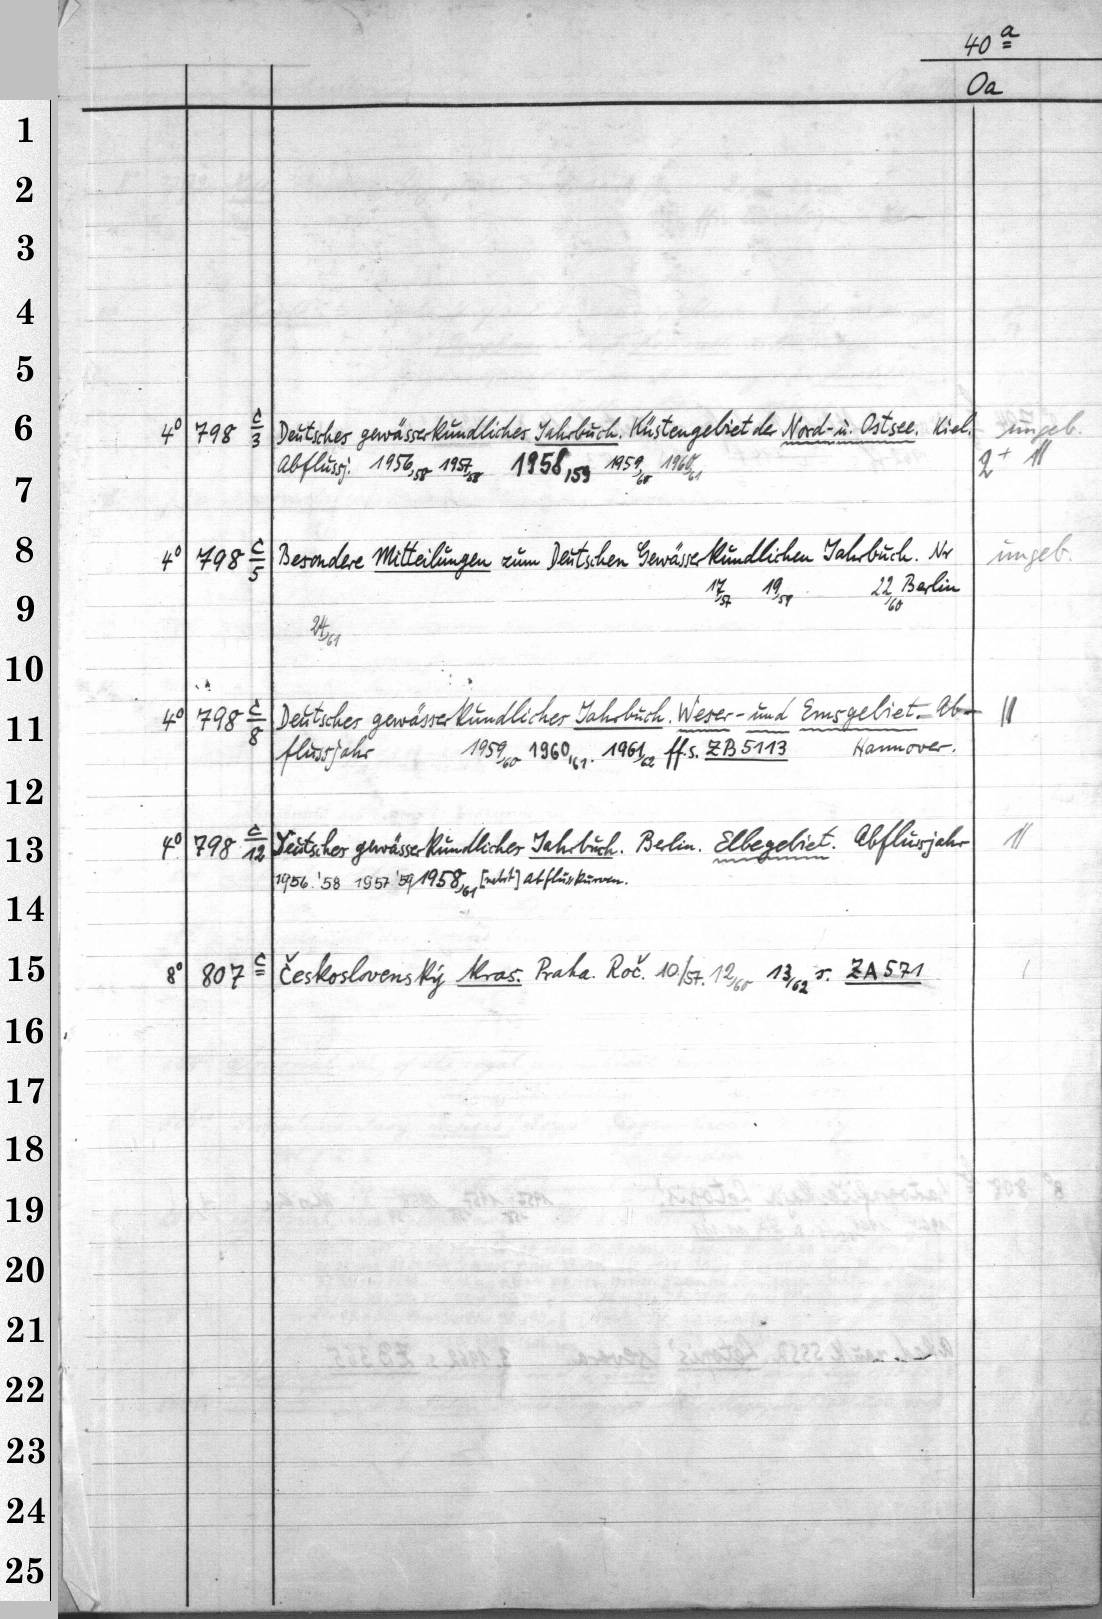 40 a
Oa
1
2
3
4
5
6 4° 798 c/3 Deutsches gewässerkundliches Jahrbuch. Küstengebiet der Nord- u. Ostsee. Kiel. ungeb.
Abflussj. 1956,58 1957/58 1958,59 1959/60 1960/61 2+ 11
7
8 4° 798 c/5 Besondere Mitteilungen zum Deutschen Gewässerkundlichen Jahrbuch. Nr ungeb.
17/57 19/59 22/60 Berlin
9
24/61
10
11 4° 798 c/8 Deutsches gewässerkundliches Jahrbuch. Weser- und Emsgebiet. Ab- 11
flussjahr 1959/60 1960,61. 1961/62 ff. s. ZB 5113 Hannover.
12
13 4° 798 c/12 Deutsches gewässerkundliches Jahrbuch. Berlin. Elbegebiet. Abflusjahr 11
1956.'58 1957'59 1958,61 [nebst] Abflusskurven.
14
15 8° 807 c Československý kras. Praha. Roč. 10/57. 12/60 13/62 s. ZA 571
16
17
18
19
20
21
22
23
24
25